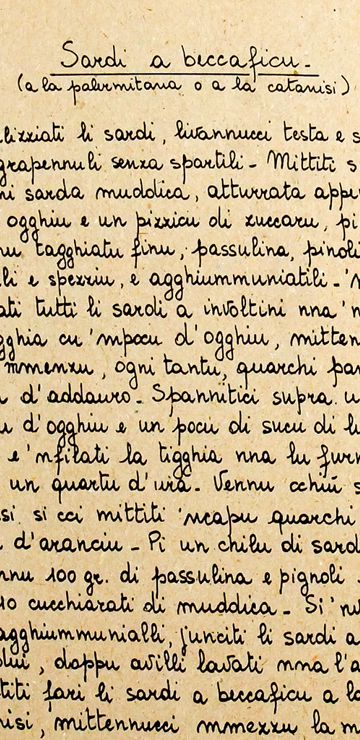 Sardi a beccaficu -
(a la palermitana o a la catanisi)
lizziati li sardi, livannucci testa e s
grapennuli senza spartili - Mittiti s
ni sarda muddica, atturrata appe
ogghiu e un pizzicu di zuccaru, pi
nu tagghiatu finu, passulina, pinoli
li e spezziu, e agghiummuniatili - 'n
ati tutti li sardi a involtini nna 'n
gghia cu 'mpocu d'ogghiu, mitten
mmenzu, ogni tantu, quarchi pam
d'addauro - Spannitici supra u
u d'ogghiu e un pocu di sucu di li
e 'nfilati la tigghia nna lu furn
un quartu d'ura - Vennu cchiù s
si si cci mittiti 'ncapu quarchi
d'aranciu - Pi un chilu di sard
nnu 100 gr. di passulina e pignoli
10 cucchiarati di muddica - Si 'nu
agghiummunialli, junciti li sardi a
dui, doppu avilli lavati nna l'a
titi fari li sardi a beccaficu a la
nisi, mittennucci mmezzu la m